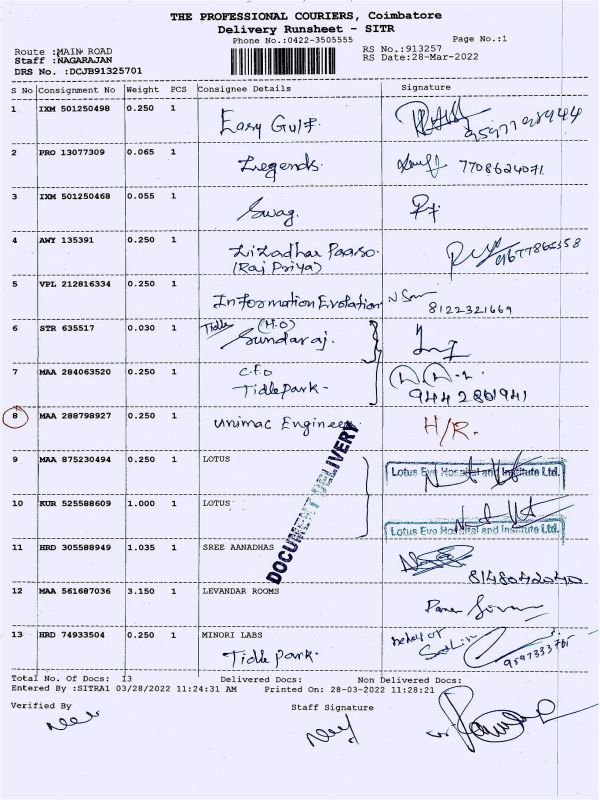 THE PROFESSIONAL COURIERS, Coimbatore
Delivery Runsheet - SITR
Phone No.:0422-3505555
Page No.:1
Route :MAIN ROAD
Staff :NAGARAJAN
DRS No. :DCJB91325701
RS No.:913257
RS Date:28-Mar-2022
S No Consignment No Weight PCS Consignee Details Signature
1 IXM 501250498 0.250 1 Easy Gulf
2 PRO 13077309 0.065 1 Legends. 7708624071
3 IXM 501250468 0.055 1 Swag.
4 AWY 135391 0.250 1 Lizadhar
(Raj Priya)
5 VPL 212816334 0.250 1 Information Evolation
8122321669
6 STR 635517 0.030 1 Tidle (H.O)
Sundaraj.
7 MAA 284063520 0.250 1 C.F.O
Tidlepark-
9442861941
8 MAA 288798927 0.250 1 Unimac Engineer H/R.
9 MAA 875230494 0.250 1 LOTUS
Lotus Eye Hospital and Institute Ltd.
10 KUR 525588609 1.000 1 LOTUS
Lotus Eye Hospital and Institute Ltd.
DOCUMENT DELIVERY
11 HRD 305588949 1.035 1 SREE AANADHAS
8148042040
12 MAA 561687036 3.150 1 LEVANDAR ROOMS
13 HRD 74933504 0.250 1 MINORI LABS
Tidle park.
Total No. Of Docs: 13 Delivered Docs: Non Delivered Docs:
Entered By :SITRA1 03/28/2022 11:24:31 AM Printed On: 28-03-2022 11:28:21
Verified By Staff Signature